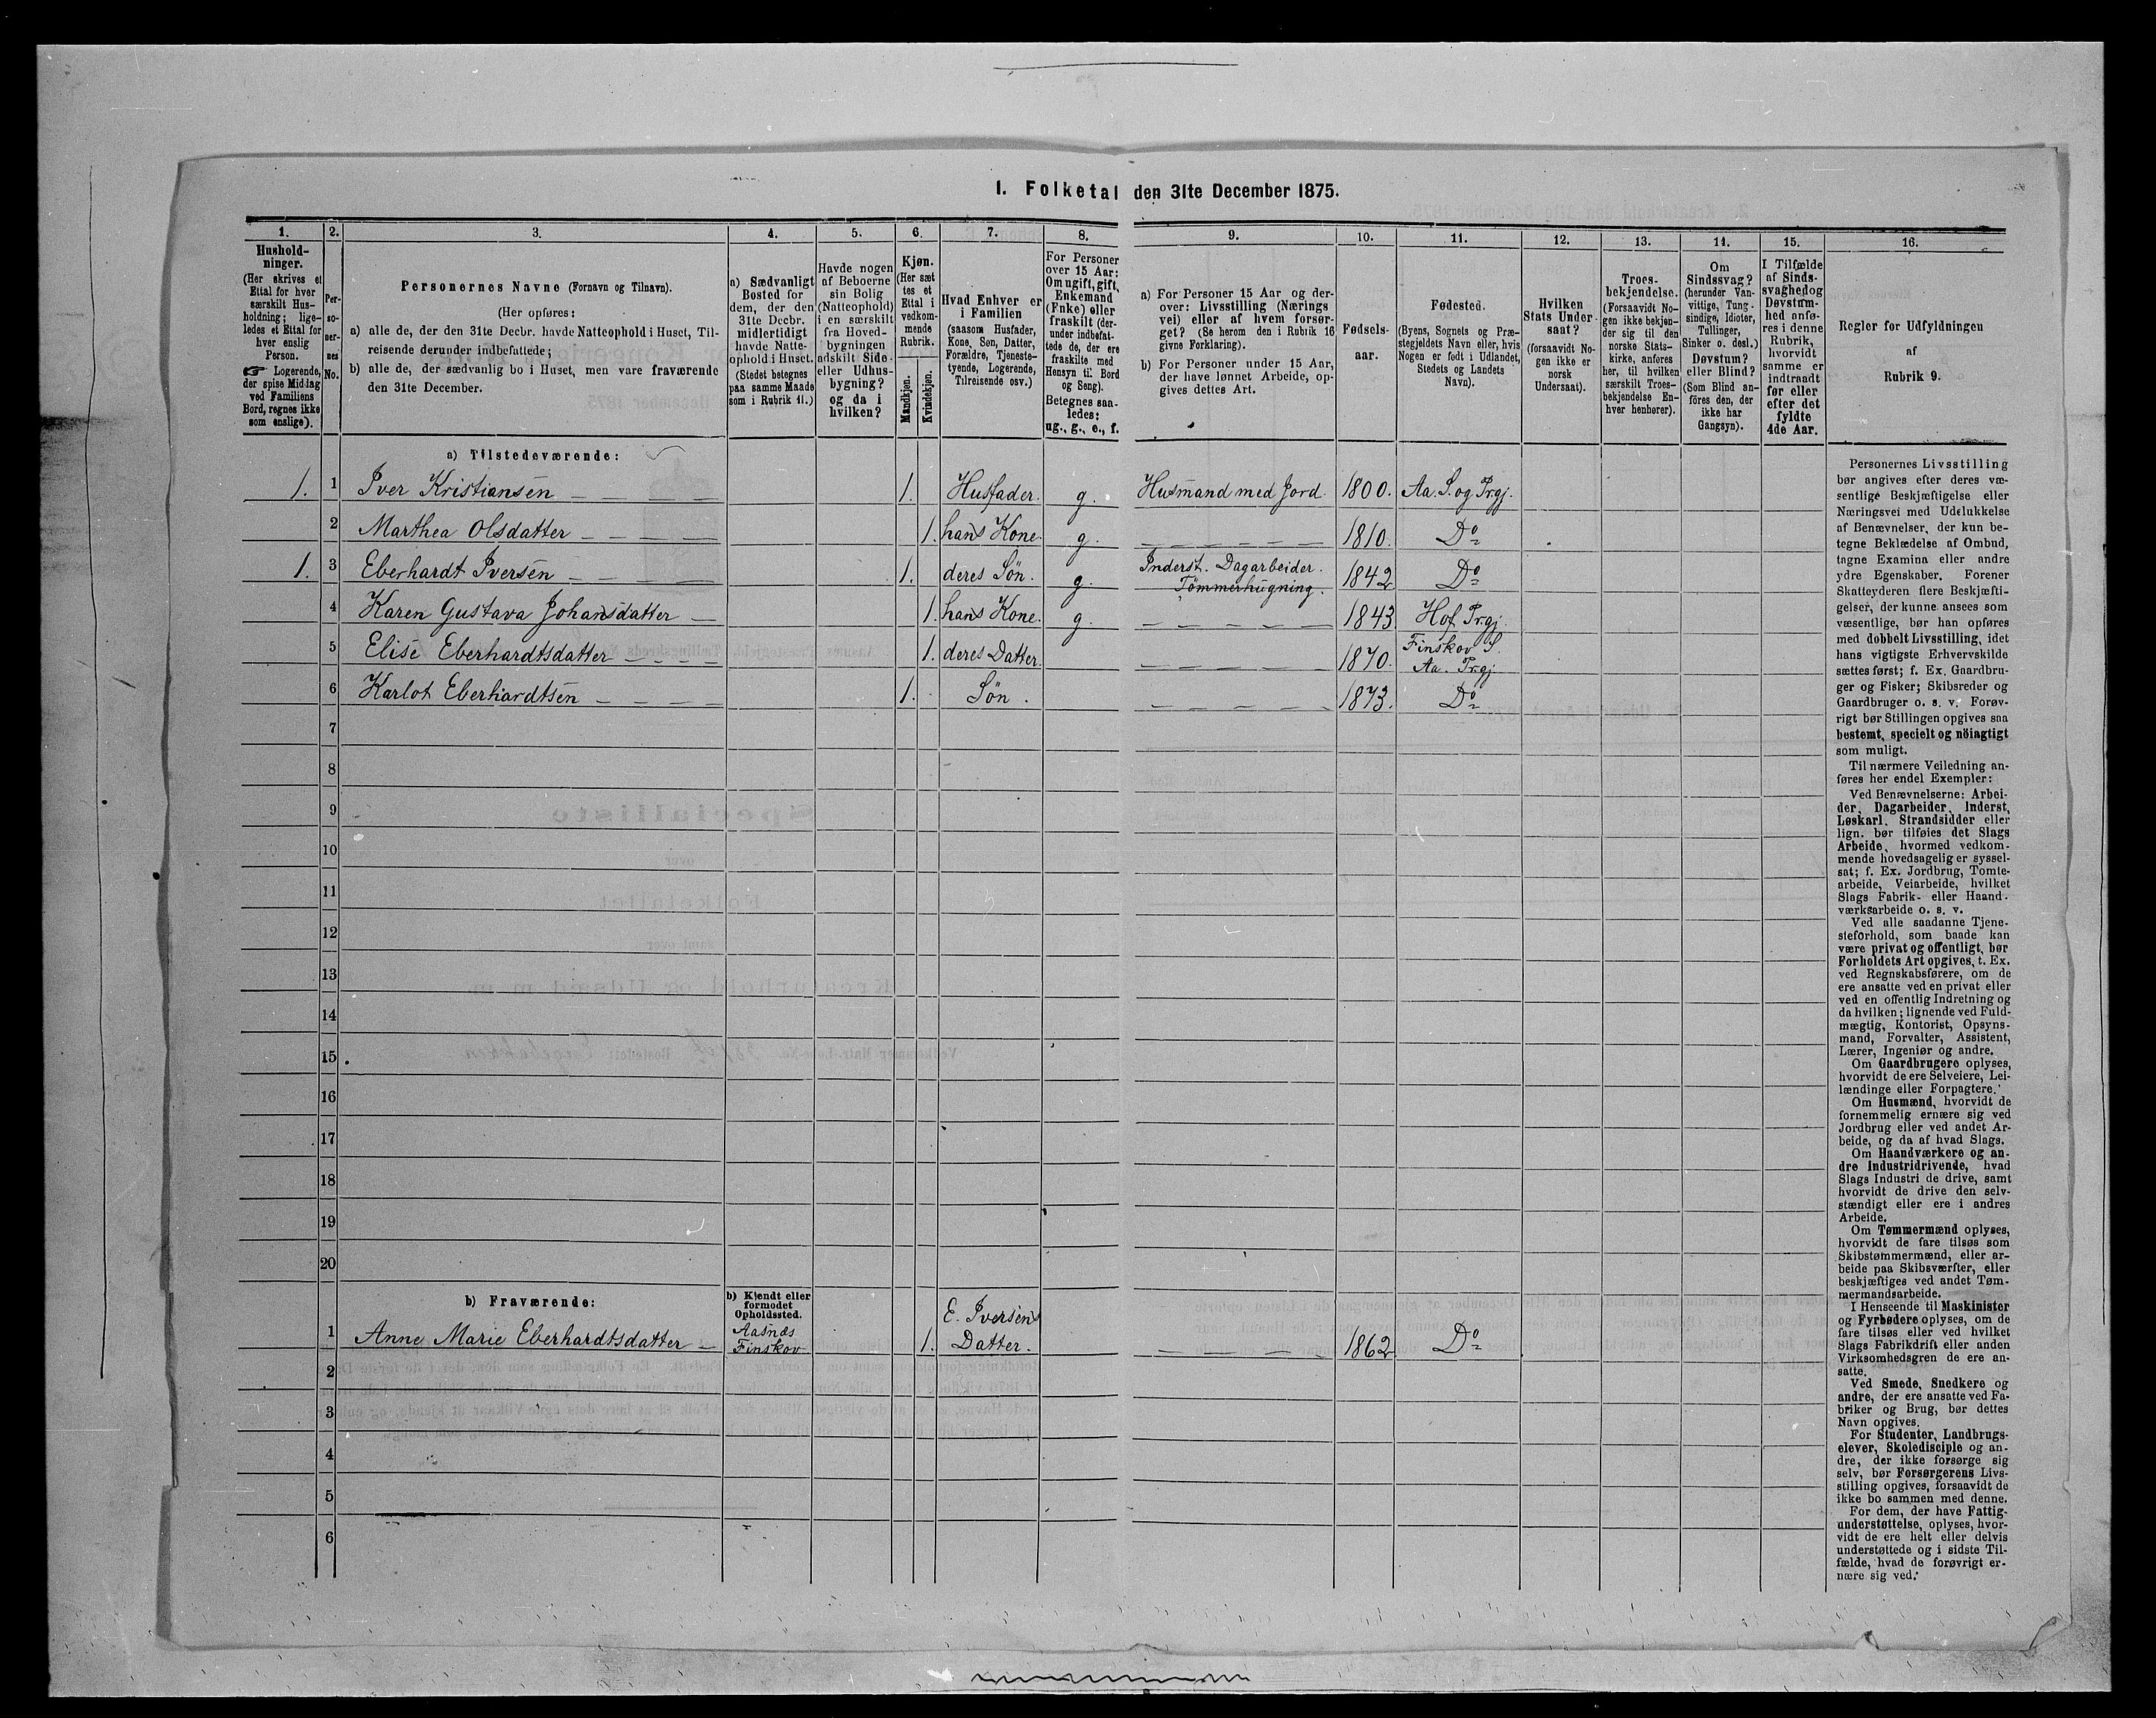 1. Folketal den 31te December 1875.
1. 2. 3. 4. 5. 6. 7. 8. 9. 10. 11. 12. 13. 14. 15. 16.
Hushold-
ninger.
(Her skrives et
Ettal for hver
særskilt Hus-
holdning; lige-
ledes et Ettal for
hver enslig
Person.
Logerende,
der spise Middag
ved Familiens
Bord, regnes ikke
som enslige).
Per-
so-
ner-
nes
No.
Personernes Navne (Fornavn og Tilnavn).
(Her opføres:
a) alle de, der den 31te Decbr. havde Natteophold i Huset, Til-
reisende derunder indbefattede;
b) alle de, der sædvanlig bo i Huset, men vare fraværende
den 31te December.
a) Sædvanligt
Bosted for
dem, der den
31te Decbr.
midlertidigt
havde Natte-
ophold i Huset.
(Stedet betegnes
paa samme Maade
som i Rubrik 11.)
Havde nogen
af Beboerne
sin Bolig
(Natteophold)
i en særskilt
fra Hoved-
bygningen
adskilt Side-
eller Udhus-
bygning?
og da i
hvilken?
Kjøn.
(Her sæt
tes et
Ettal i
vedkom-
mende
Rubrik.
Mandkjøn.
Kvindekjøn.
Hvad Enhver er
i Familien
(saasom Husfader,
Kone, Søn, Datter,
Forældre, Tjeneste-
tyende, Logerende,
Tilreisende osv.)
For Personer
over 15 Aar:
Om ugift, gift,
Enkemand
(Enke) eller
fraskilt (der-
under indbefat-
tede de, der ere
fraskilte med
Hensyn til Bord
og Seng).
Betegnes saa-
ledes:
ug., g., e., f.
a) For Personer 15 Aar og der-
over: Livsstilling (Nærings
vei) eller af hvem forsør-
get? (Se herom den i Rubrik 16
givne Forklaring).
b) For Personer under 15 Aar,
der have lønnet Arbeide, op-
gives dettes Art.
Fødsels-
aar.
Fødested.
(Byens, Sognets og Præ-
stegjeldets Navn eller, hvis
Nogen er født i Udlandet,
Stedets og Landets
Navn).
Hvilken
Stats Under-
saat?
(forsaavidt No-
gen ikke er
norsk
Undersaat).
Troes-
bekjendelse.
(Forsaavidt No-
gen ikke bekjen-
der sig til den
norske Stats-
kirke, anføres
her, til hvilken
særskilt Troes-
bekjendelse En-
hver henhører).
Om
Sindssvag?
(herunder Van-
vittige, Tung-
sindige, Idioter,
Tullinger,
Sinker o. desl.)
Døvstum?
eller Blind?
(Som Blind an-
føres den, der
ikke har
Gangsyn).
I Tilfælde
af Sinds-
svaghed og
Døvstum-
hed anfø-
res i denne
Rubrik,
hvorvidt
samme er
indtraadt
før eller
efter det
fyldte
4de Aar.
Regler for Udfyldningen
af
Rubrik 9.
a) Tilstedeværende:
1. 1 Iver Kristiansen 1. Husfader. g. Husmand med Jord. 1800. Aa. S. og Prgj.
2 Marthea Olsdatter 1. hans Kone. g. 1810. Do
1. 3 Eberhardt Iversen 1. deres Søn. g. Inderst. Dagarbeider.
Tømmerhugning. 1842 Do
4 Karen Gustava Johansdatter 1. hans Kone. g. 1843 Hof Prgj.
5 Elise Eberhardtsdatter 1. deres Datter. 1870. Finskov S.
Aa. Prgj
6 Karlot Eberhardtsen 1. Søn. 1873. Do
7
8
9
10
11
12
13
14
15
16
17
18
19
20
b) Fraværende:
b) Kjendt eller
formodet
Opholdssted.
1 Anne Marie Eberhardtsdatter Aasnæs
Finskov 1. E. Iversens
Datter. 1862 Do
2
3
4
5
6
Personernes Livsstilling
bør angives efter deres væ-
sentlige Beskjæftigelse eller
Næringsvei med Udelukkelse
af Benævnelser, der kun be-
tegne Beklædelse af Ombud,
tagne Examina eller andre
ydre Egenskaber. Forener
Skatteyderen flere Beskjæfti-
gelser, der kunne ansees som
væsentlige, bør han opføres
med dobbelt Livsstilling, idet
hans vigtigste Erhvervskilde
sættes først; f. Ex. Gaardbru-
ger og Fisker; Skibsreder og
Gaardbruger o. s. v. Forøv-
rigt bør Stillingen opgives saa
bestemt, specielt og nöiagtigt
som muligt.
Til nærmere Veiledning an-
føres her endel Exempler:
Ved Benævnelserne: Arbei-
der, Dagarbeider, Inderst,
Løskarl, Strandsidder eller
lign. bør tilføies det Slags
Arbeide, hvormed vedkom-
mende hovedsagelig er syssel-
sat; f. Ex. Jordbrug, Tomte-
arbeide, Veiarbeide, hvilket
Slags Fabrik- eller Haand-
værksarbeide o. s. v.
Ved alle saadanne Tjene-
steforhold, som baade kan
være privat og offentligt, bør
Forholdets Art opgives, t. Ex.
ved Regnskabsførere, om de
ere ansatte ved en privat eller
ved en offentlig Indretning og
da hvilken; lignende ved Fuld-
mægtig, Kontorist, Opsyns-
mand, Forvalter, Assistent,
Lærer, Ingeniør og andre.
Om Gaardbrugere oplyses,
hvorvidt de ere Selveiere, Lei-
lændinge eller Forpagtere.
Om Husmænd, hvorvidt de
fornemmelig ernære sig ved
Jordbrug eller ved andet Ar-
beide, og da af hvad Slags.
Om Haandværkere og an-
dre Industridrivende, hvad
Slags Industri de drive, samt
hvorvidt de drive den selv-
stændigt eller ere i andres
Arbeide.
Om Tømmermænd oplyses,
hvorvidt de fare tilsøs som
Skibstømmermænd, eller ar-
beide paa Skibsværfter, eller
beskjæftiges ved andet Tøm-
mermandsarbeide.
I Henseende til Maskinister
og Fyrbødere oplyses, om de
fare tilsøs eller ved hvilket
Slags Fabrikdrift eller anden
Virksomhedsgren de ere an-
satte.
Ved Smede, Snedkere og
andre, der ere ansatte ved Fa-
briker og Brug, bør dettes
Navn opgives.
For Studenter, Landbrugs-
elever, Skoledisciple og an-
dre, der ikke forsørge sig
selv, bør Forsørgerens Livs-
stilling opgives, forsaavidt de
ikke bo sammen med denne.
For dem, der have Fattig-
understøttelse, oplyses, hvor-
vidt de ere helt eller delvis
understøttede og i sidste Til-
fælde, hvad de forøvrigt er-
nære sig ved.